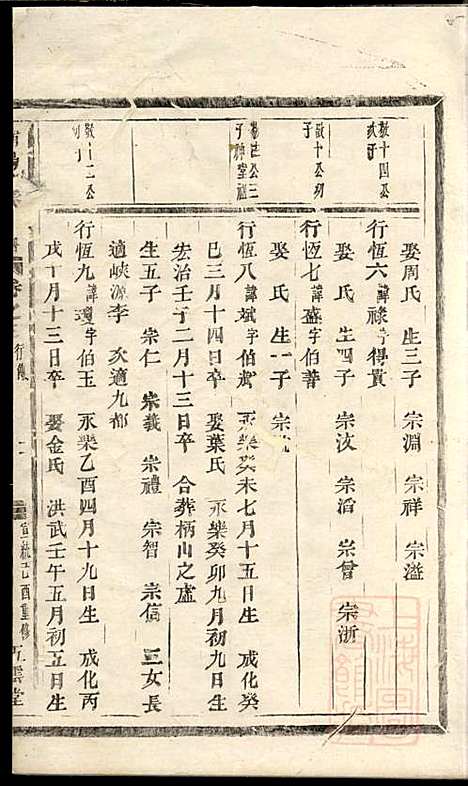 敬十四公
次子
敬十公初
子
子神童祖
敬十二公
娶周氏 生三子 宗淵 宗祥 宗溢
行恆六 諱祿 字得貴
娶 氏 生四子 宗汶 宗滔 宗曾 宗浙
行恆七 諱盛 字伯善
娶 氏 生一子 宗
行恆八 諱斌 字伯 永樂癸未七月十五日生 成化癸
巳三月十四日卒 娶葉氏 永樂癸卯九月初九日生
宏治壬子二月十三日卒 合葬柄山之處
生五子 宗仁 宗義 宗禮 宗智 宗信 三女長
適峽源李 次適九都
行恆九 諱瓊 字伯玉 永樂乙酉四月十九日生 成化丙
戌十月十三日卒 娶金氏 洪武壬午五月初五日生
行傳
宣統己酉重修
五雲堂